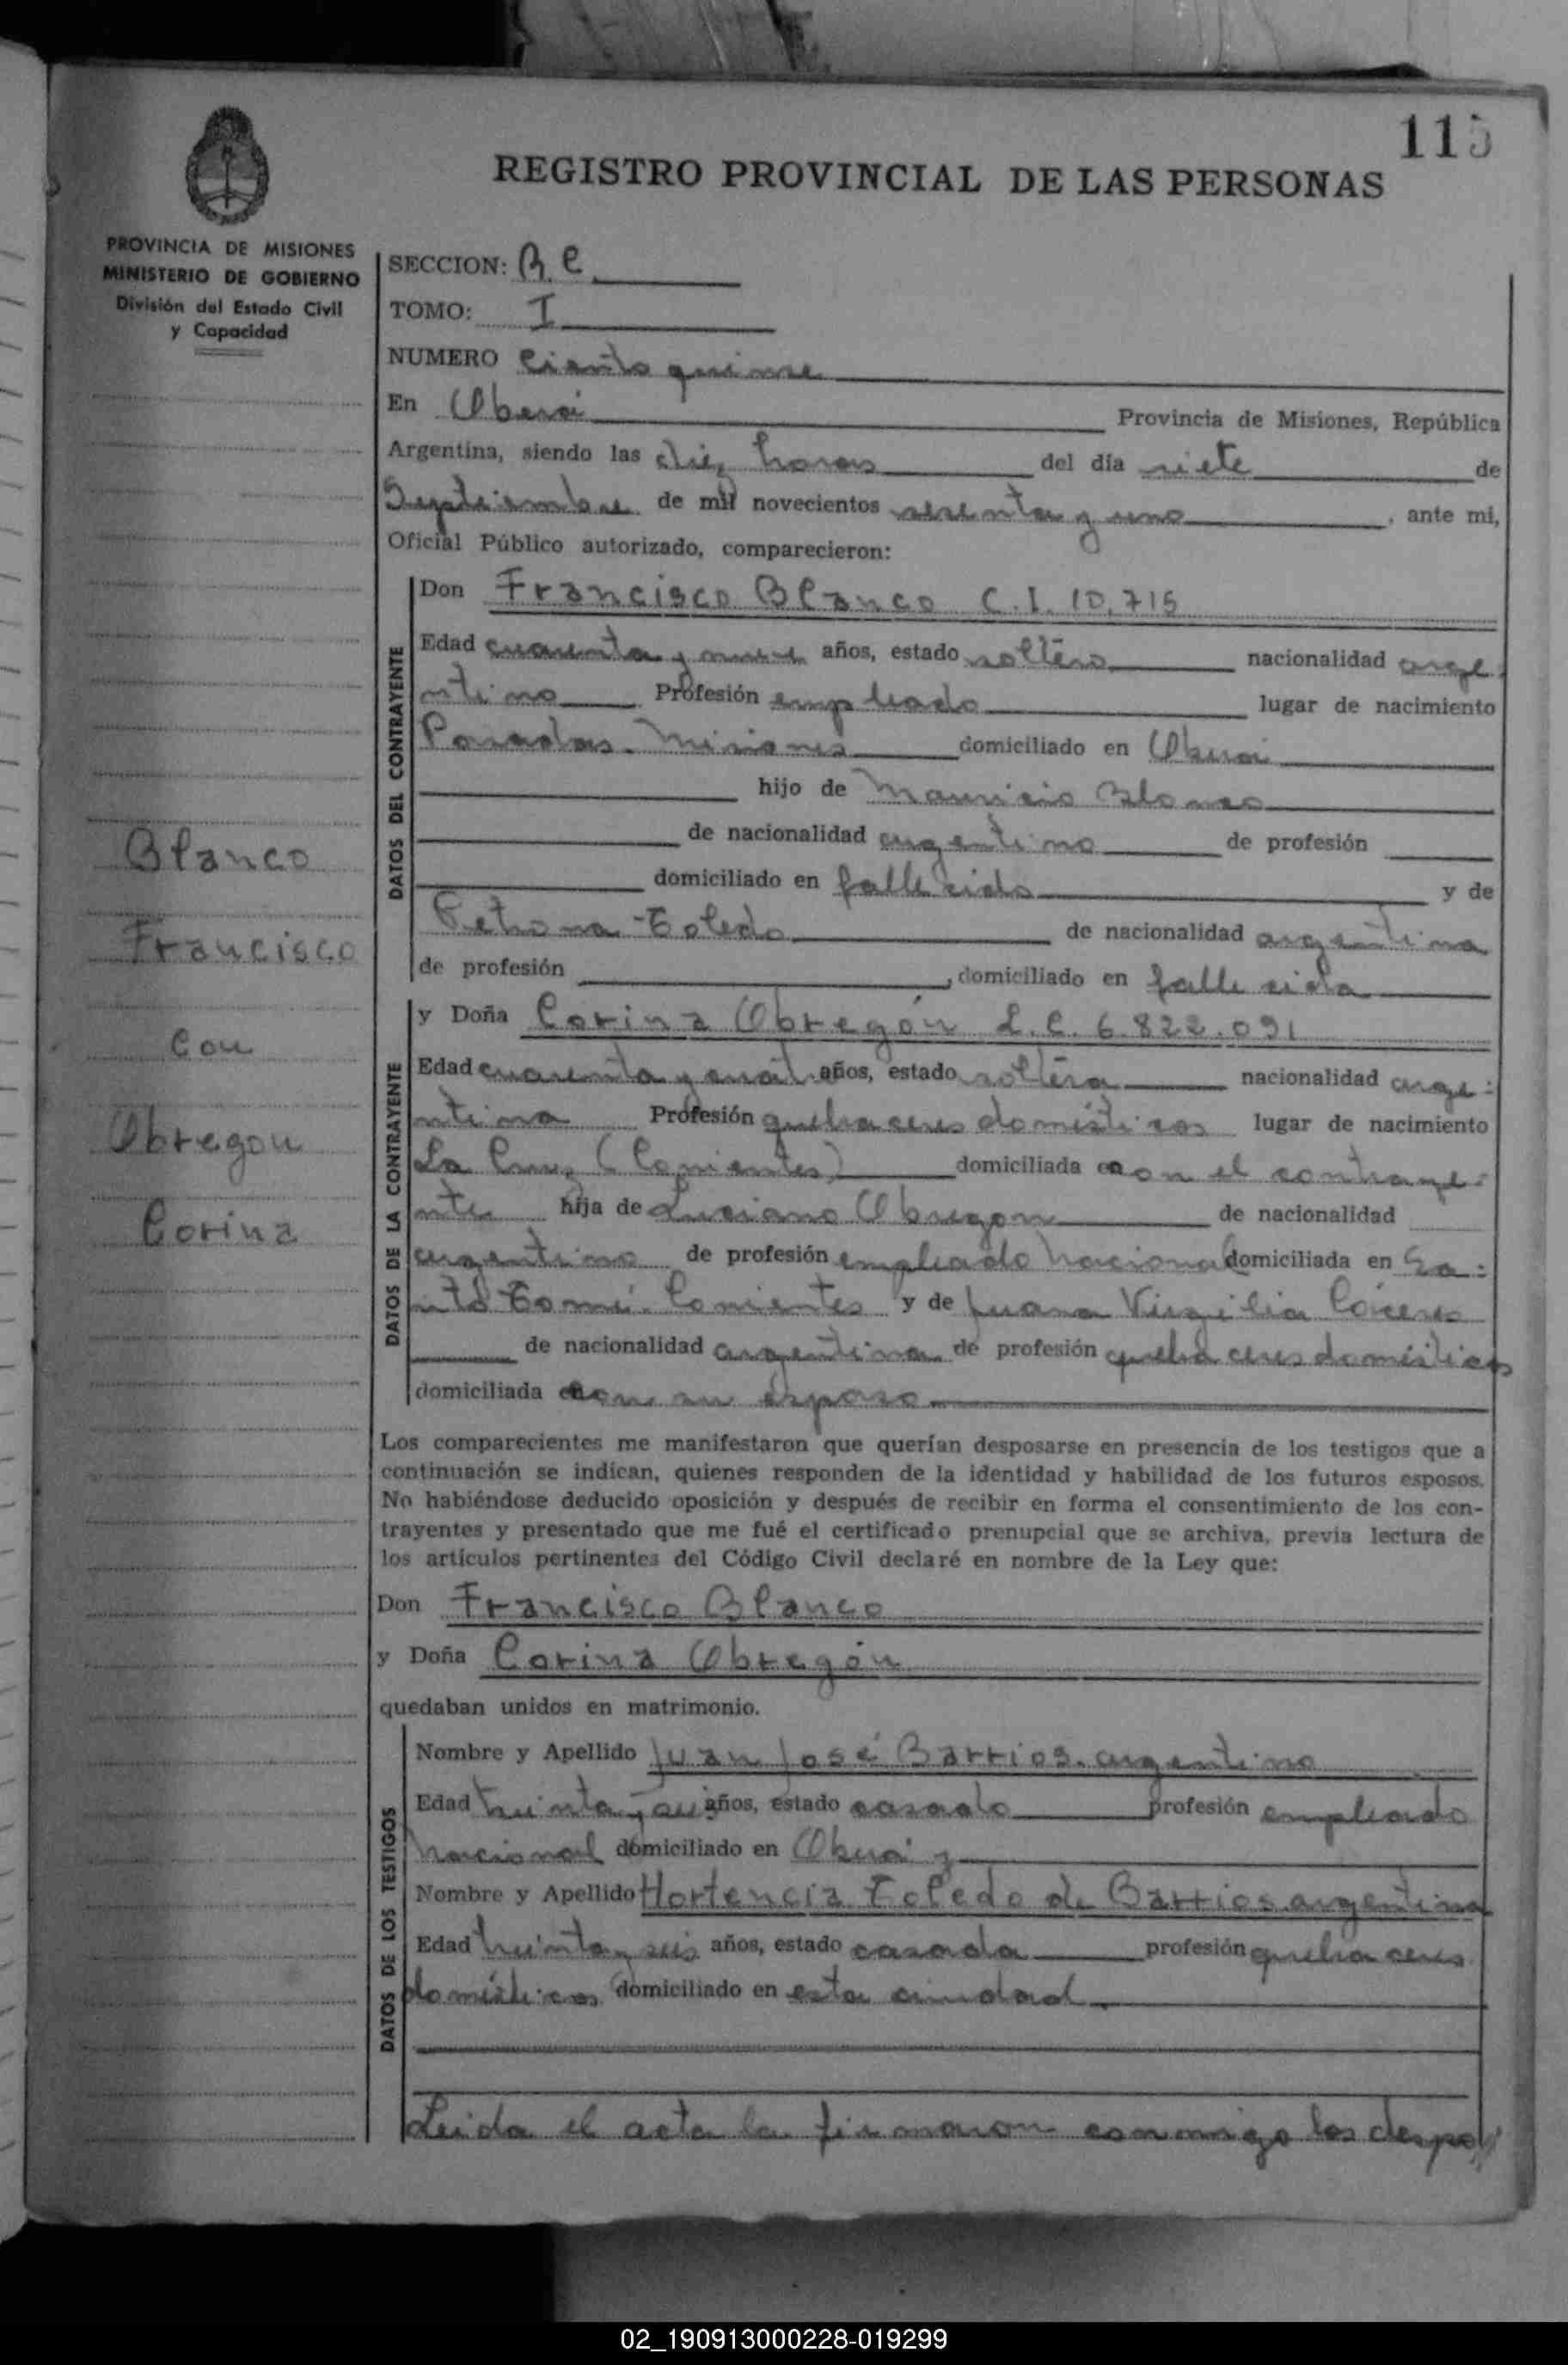 115
REGISTRO PROVINCIAL DE LAS PERSONAS
PROVINCIA DE MISIONES
MINISTERIO DE GOBIERNO
División del Estado Civil
y Capacidad
Blanco
Francisco
con
Obregon
Corina
SECCION: R. C.
TOMO: I
NUMERO Ciento quince
En Oberá Provincia de Misiones, República
Argentina, siendo las diez horas del día siete de
Septiembre de mil novecientos sesenta y uno, ante mi,
Oficial Público autorizado, comparecieron:
DATOS DEL CONTRAYENTE
Don Francisco Blanco C.I. 10.715
Edad cuarenta y nueve años, estado soltero nacionalidad arge-
ntino Profesión empleado lugar de nacimiento
Posadas. Misiones domiciliado en Oberá
hijo de Mauricio Blanco
de nacionalidad argentino de profesión
domiciliado en fallecido y de
Petrona Toledo de nacionalidad argentina
de profesión , domiciliado en fallecida
DATOS DE LA CONTRAYENTE
y Doña Corina Obregón L.C. 6.822.091
Edad cuarenta y cuat. años, estado soltera nacionalidad arge:
ntina Profesión quehaceres domésticos lugar de nacimiento
La Cruz (Corrientes) domiciliada con el contraye:
nte hija de Luciano Obregon de nacionalidad
argentino de profesión empleado nacional domiciliada en Sa:
nto Tomé. Corrientes y de Juana Virgilia Cáceres
de nacionalidad argentina de profesión quehaceres domésticos
domiciliada con su esposo
Los comparecientes me manifestaron que querían desposarse en presencia de los testigos que a
continuación se indican, quienes responden de la identidad y habilidad de los futuros esposos.
No habiéndose deducido oposición y después de recibir en forma el consentimiento de los con-
trayentes y presentado que me fué el certificado prenupcial que se archiva, previa lectura de
los artículos pertinentes del Código Civil declaré en nombre de la Ley que:
Don Francisco Blanco
y Doña Corina Obregón
quedaban unidos en matrimonio.
DATOS DE LOS TESTIGOS
Nombre y Apellido Juan José Barrios. argentino
Edad treinta y seis años, estado casado profesión empleado
nacional domiciliado en Oberá y
Nombre y Apellido Hortencia Toledo de Barrios argentina
Edad treinta y seis años, estado casada profesión quehaceres
domésticos domiciliado en esta ciudad.
Leida el acta la firmaron conmigo los despo
02_190913000228-019299